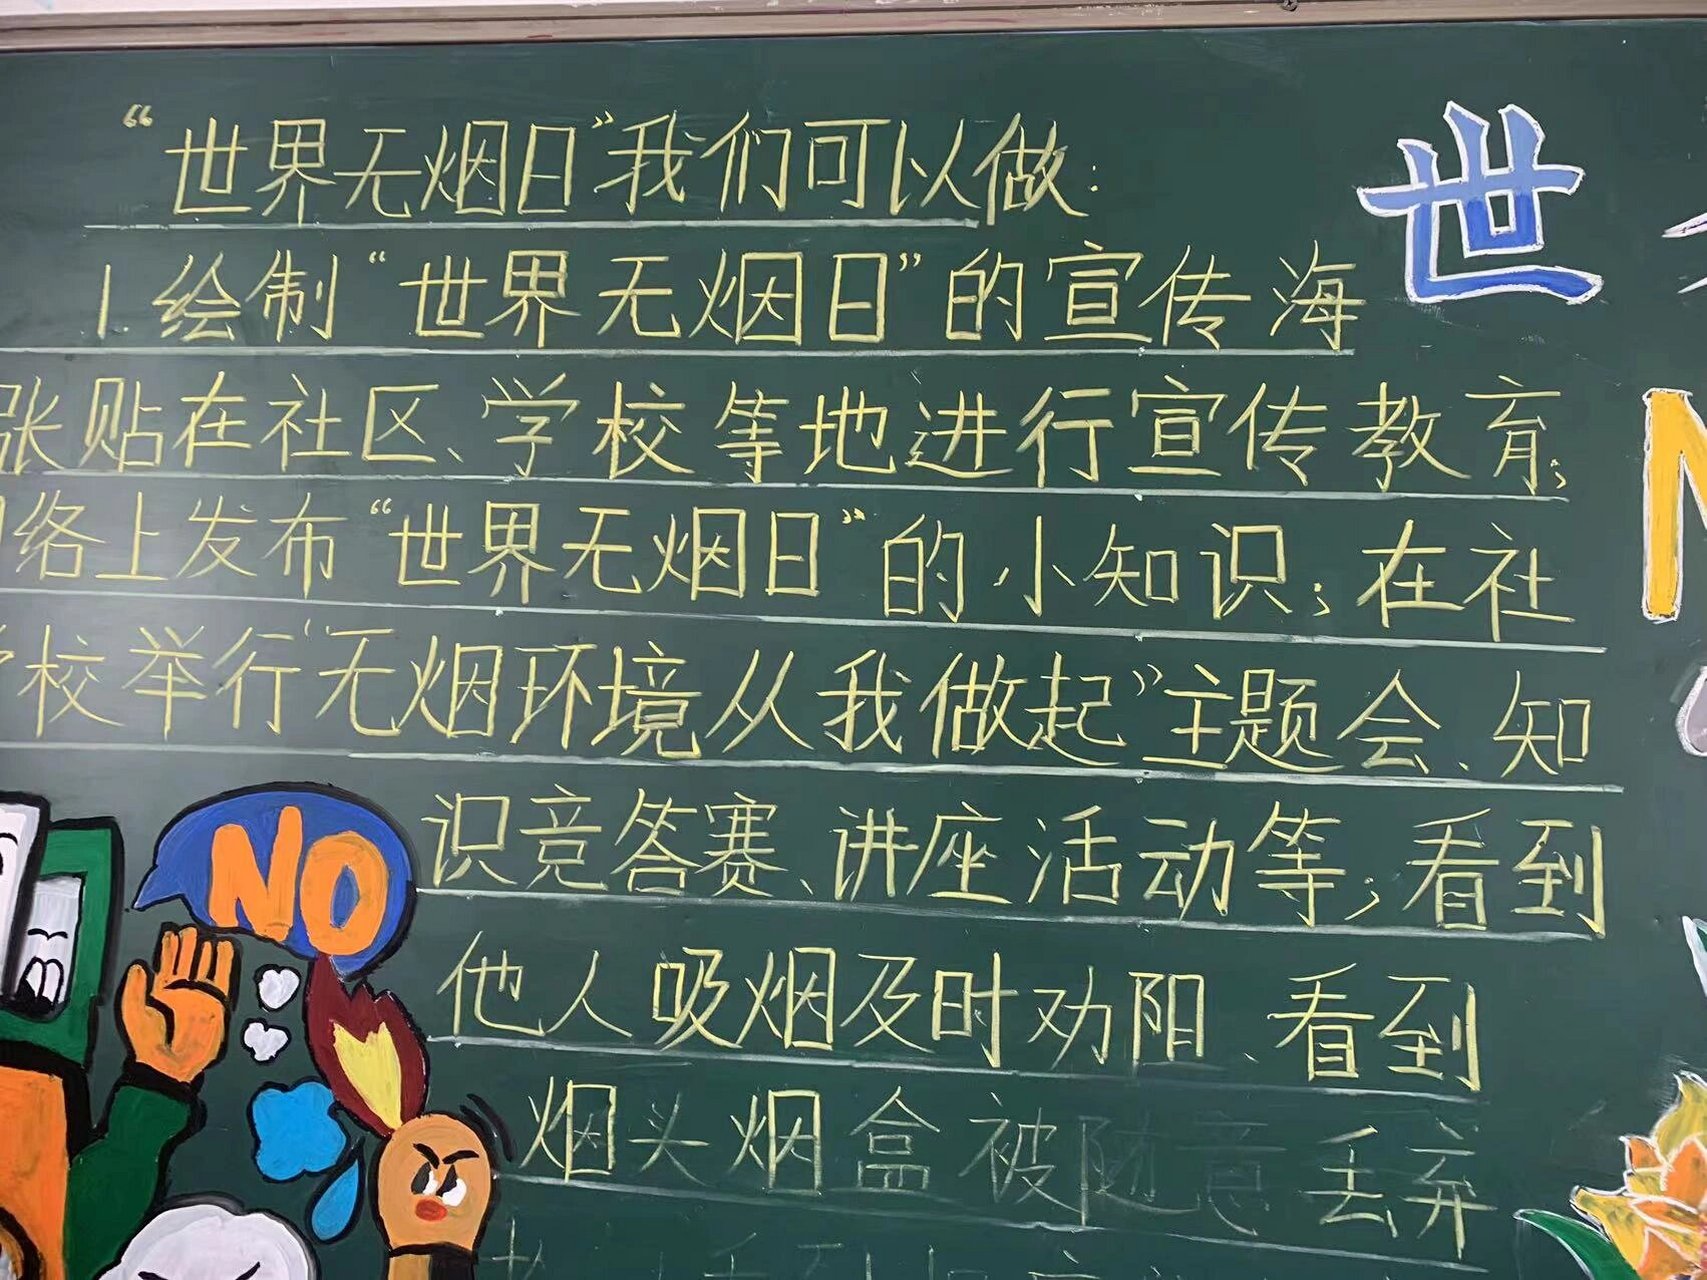 “世界无烟日”我们可以做:
1.绘制“世界无烟日”的宣传海
张贴在社区、学校等地进行宣传教育;
络上发布“世界无烟日”的小知识;在社
校举行“无烟环境从我做起”主题会、知
识竞答赛、讲座活动等;看到
他人吸烟及时劝阳、看到
烟头烟盒被随意丢弃
世
N
NO